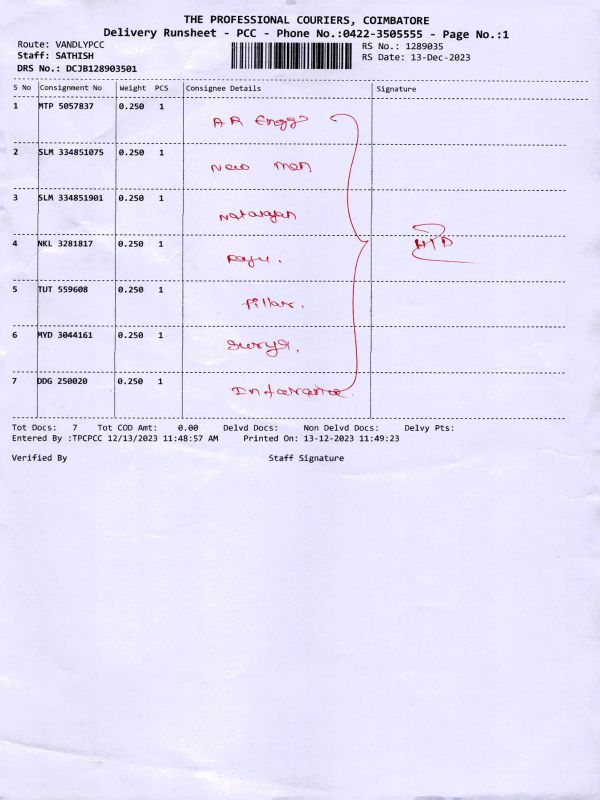 THE PROFESSIONAL COURIERS, COIMBATORE
Delivery Runsheet - PCC - Phone No.:0422-3505555 - Page No.:1
Route: VANDLYPCC RS No.: 1289035
Staff: SATHISH RS Date: 13-Dec-2023
DRS No.: DCJB128903501
S No Consignment No Weight PCS Consignee Details Signature
1 MTP 5057837 0.250 1 AR Engg
2 SLM 334851075 0.250 1 New man
3 SLM 334851901 0.250 1 Natarajan
4 NKL 3281817 0.250 1 Raju.
5 TUT 559608 0.250 1 Pillar.
6 MYD 3044161 0.250 1 Surya.
7 DDG 250020 0.250 1
Tot Docs: 7 Tot COD Amt: 0.00 Delvd Docs: Non Delvd Docs: Delvy Pts:
Entered By :TPCPCC 12/13/2023 11:48:57 AM Printed On: 13-12-2023 11:49:23
Verified By Staff Signature